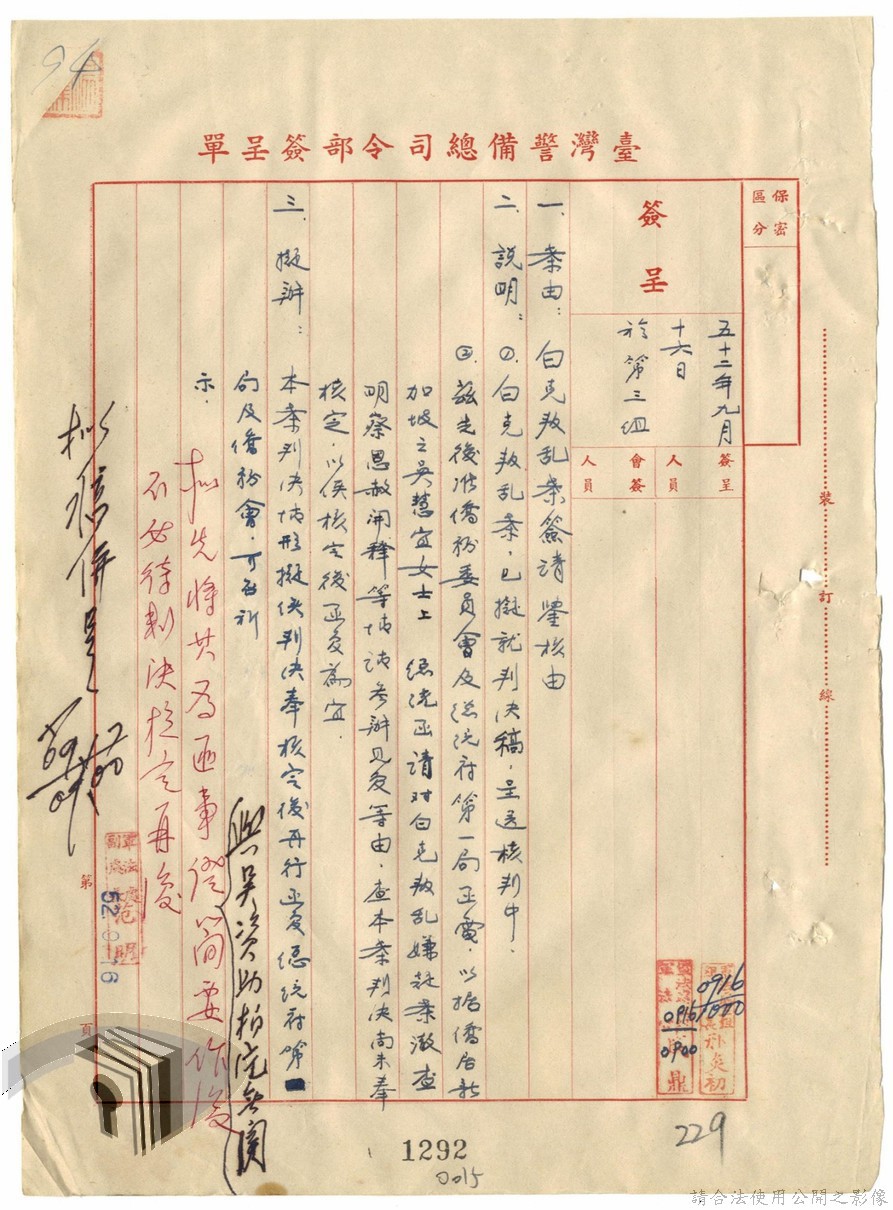 94
臺灣警備總司令部簽呈單
保密
區分
簽呈
五十二年九月
十六日
於第三組
簽呈
人員
會簽
人員
一、案由：白克叛乱案簽請鑒核由
二、説明：①白克叛乱案，已擬就判决稿，呈送核判中。
②茲先後准僑務委員會及總統府第一局函電，以據僑居新
加坡之吳慧宜女士上　總統函請对白克叛乱嫌疑案澈查
明察恩赦開釋等情請参辦見复等由，查本案判决尚未奉
核定，以俟核定後函复為宜。
三、擬辦：本案判决情形擬俟判决奉核定後再行函复總統府第一
局及僑務會，可否祈
示。
拟先將其為匪事證簡要作復
不必待判决核定再復
與吳資助柏克無関
拟稿併呈
軍法處
副處長范明
52.9.16
第
頁
裝
訂
線
0916
1000
0916
0900
229
1292
0015
請合法使用公開之影像